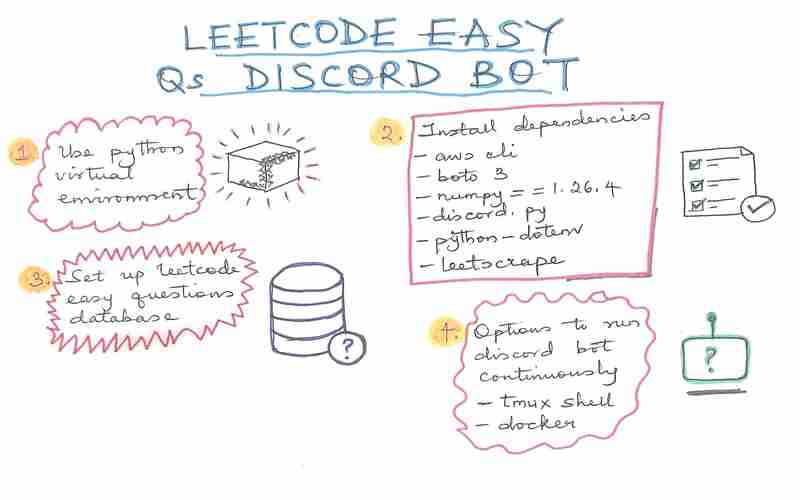 LEETCODE EASY
Qs DISCORD BOT
1. Use python
virtual
environment
2. Install dependencies
- aws cli
- boto 3
- numpy == 1.26.4
- discord.py
- python-dotenv
- leetscrape
3. Set up leetcode
easy questions
database
?
4. Options to run
discord bot
continuously
- tmux shell
- docker
?